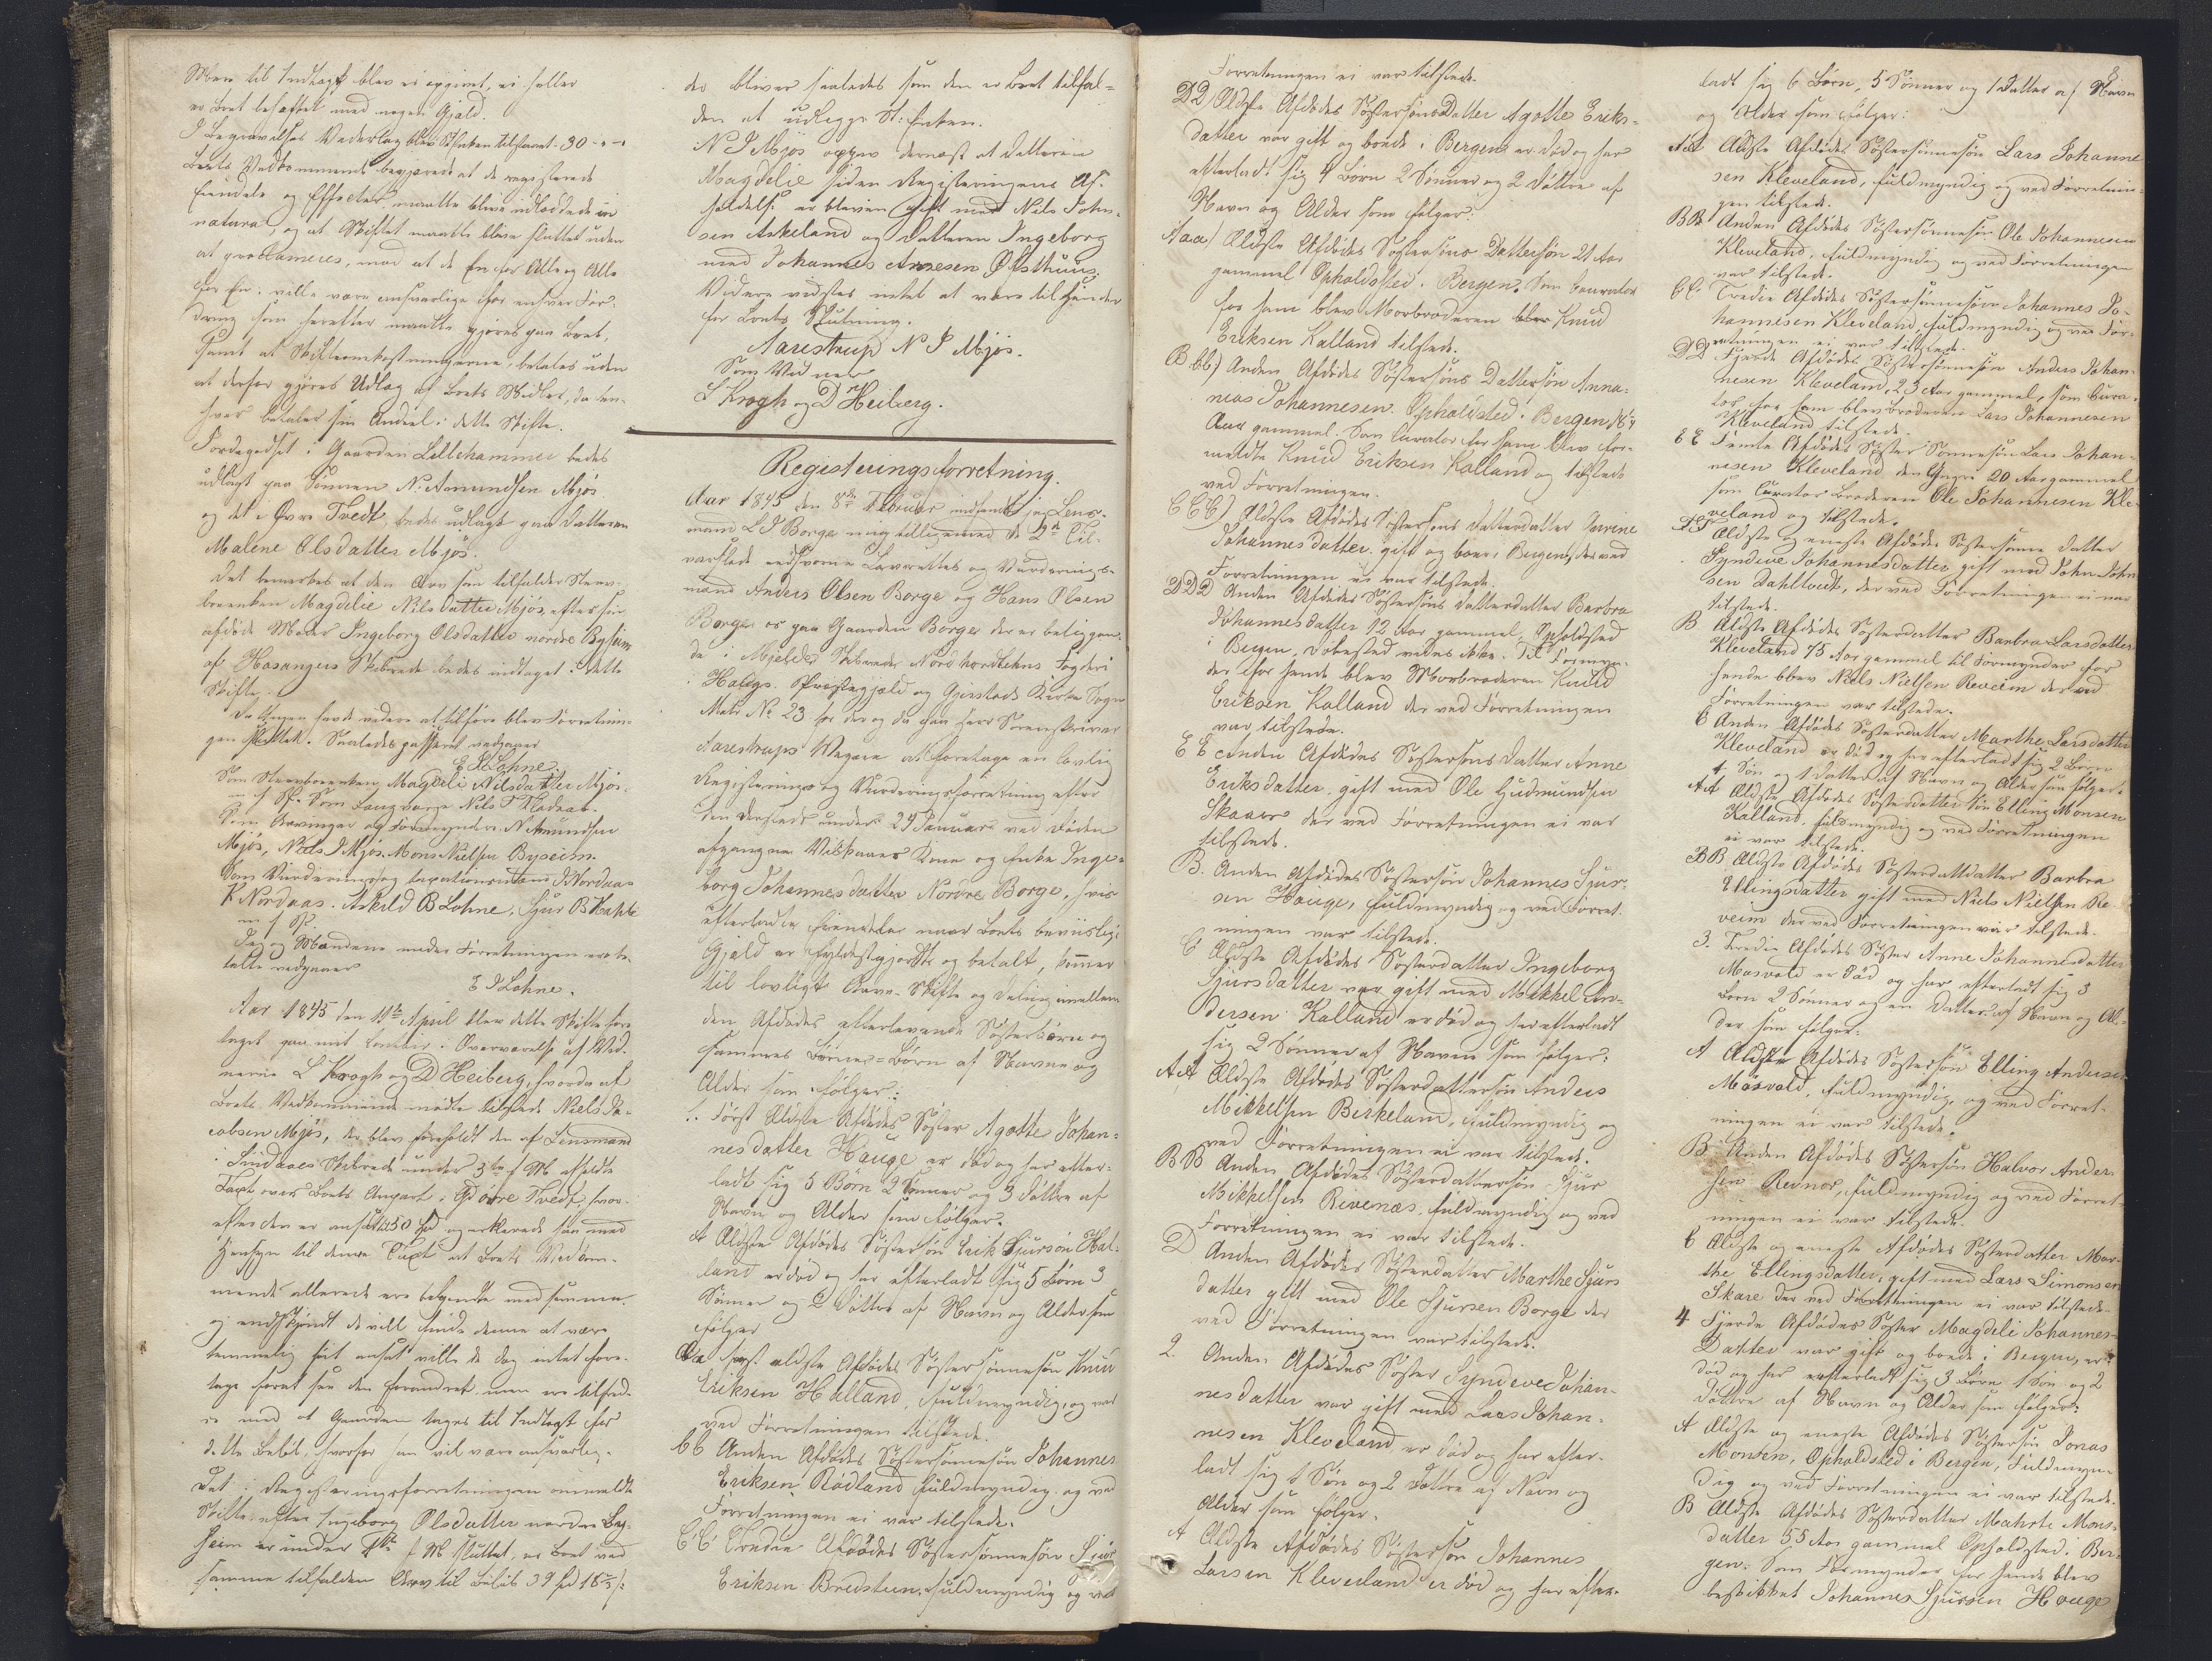 Mere til Indtægt blev ei opgivet, ei heller
er Boet behæftet med nogen Gjæld.
I Begravelses Vederlag blev Enken tilstaaet 30 - " - "
Boets Vedkommende begjærede at de registerede
Eiendele og Effecter maatte blive udloddede in
natura, og at Skiftet maatte blive sluttet uden
at proclameres, mod at de En for Alle og Alle
for En: ville være ansvarlige for enhver For-
dring som herefter maatte gjøres paa Boet,
samt at Skifteomkostningerne betales uden
at derfor gjøres Udlæg af Boets Midler, da en-
hver betaler sin Andeel i dette Skifte.
Jordegodset i Gaarden Lillehammer bedes
udlagt paa Sønnen N. Amundsen Mjøs
og det i Øvre Tvedt bedes udlagt paa Datteren
Malene Olsdatter Mjøs.
Det bemærkes at den Arv som tilfalder Sterv-
boenken Magdelie Nilsdatter Mjøs, efter sin
afdøde Moder Ingeborg Olsdatter nordre Byseim
af Hosangers Skibrede bedes indtaget i dette
Skifte.
Da Ingen havde videre at tilføre blev Forretnin-
gen sluttet. Saaledes passeret vedgaaer
E I Lohne.
Som Stervboenken Magdeli Nilsdatter Mjøs.
m f P. Som Laugværge Nils
Som Arvinger og Formynder N Amundsen
Mjøs, Niels I Mjøs. Mons Nielsen Byseim.
Som Vurderings og taxationsmænd I Nordaas
K Nordaas. Askild B Lohne, Sjur B
m f P.
Jeg og Mændene under Forretningen
vedgaaer
E I Lohne.
Aar 1845 den 19de April blev dette Skifte fore
taget paa mit Contoir i Overværelse af Vid-
nerne L Krogh og D Heiberg, hvorda af
Boets Vedkommende mødte tilstede Niels Ja-
cobsen Mjøs, der blev foreholdt den af Lensmand
i Lindaaes Skibrede under 3de f M afholdte
Taxt over Boets Anpart i Gd øvre Tvedt, hvor-
efter den er ansat til 50 Spd og erklærede han med
Hensyn til denne Taxt at Boets Vedkom-
mende allerede ere bekjendte med samme.
og endskjøndt de vill finde denne at være
temmelig høit ansat ville de dog intet fore-
tage foret faa den forandret men ere tilfred-
se med at Gaarden tages til Indtægt for
dette Beløb, hvorfor han vil være ansvarlig.
Det i Registeringsforretningen anmeldte
Skifte efter Ingeborg Olsdatter nordre By-
seim er under f M sluttet, er Boet ved
samme tilfalden Arv til Beløb 39 Spd 18 2/3 s:
der bliver saaledes som den er Boet tilfal-
den at udlægge St: Enken.
N I Mjøs opgav dernæst at Datteren
Magdelie siden Registeringens Af-
holdelse er bleven gift med Nils John-
sen Askeland og Datteren Ingeborg
med Johannes Arnesen Østhuus,
Videre vidstes intet at være tilhænder
for Boets Slutning.
Aarestrup N I Mjøs.
Som Vidner
L Krogh og D Heiberg.
Registeringsforretning.
Aar 1845 den 8de Februar indfandt jeg Lens-
mand L I Borge mig tilligemed de 2de til-
varslede edsvorne Laverettes og Vurderings-
mænd Anders Olsen Borge og Hans Olsen
Borge os paa Gaarden Borge der er beliggen-
de i Mjelde Skibrede Nordhordlehns Fogderi
Hougs Præstegjeld og Gjerstads Kirke Sogn
Matr No 23 for der og da paa Herr Sorenskriver
Aarestrups Vegne at foretage en lovlig
Registerings og Vurderingsforretning efter
den dersteds under 24 Januar ved Døden
afgangne Vilkaars Kone og Enke Inge-
borg Johannesdatter Nordre Borge, hvis
efterladte Eiendele naar Boets beviislige
Gjæld er fyldestgjordt og betalt, kommer
til lovligt Arve-Skifte og Deling imellem
den Afdødes efterlevende Søsterbørn og
sammes Børne-Børn af Navne og
Alder som følger:
1. Først Ældste Afdødes Søster Agatte Johan-
nesdatter Hauge er død og har efter-
ladt sig 5 Børn 2 Sønner og 3 Døttre af
Navn og Alder som følger.
A Ældste Afdødes Søstersøn Erik Sjursøn Kal-
land er død og har efterladt sig 5 Børn 3
Sønner og 2 Døttre af Navn og Alder som
følger
Aa først ældste Afdødes Søstersønnesøn Knud
Eriksen Halland, fuldmyndig, og var
ved Forretningen tilstede.
bb Anden Afdødes Søstersønnesøn Johannes
Eriksen Rødland fuldmyndig og ved
Forretningen ei var tilstede.
CC Tredie Afdødes Søstersønnesøn Sjur
Eriksen Bredsteen, fuldmyndig og ved
Forretningen ei var tilstede.
DD Ældste Afdødes SøstersønsDatter Agatte Eriks-
datter var gift og boede i Bergen er død og har
efterladt sig 4 Børn 2 Sønner og 2 Døttre af
Navn og Alder som følger:
Aaa) Ældste Afdødes Søstersøns Dattersøn 21 Aar
gammel Opholdsted i Bergen. Som Curator
for ham blev Morbroderen blev Knud
Eriksen Kalland tilstede.
B bb) Anden Afdødes Søstersøns Dattersøn Anna-
nias Johannesen Opholdsted i Bergen, 18 1/4
Aar gammel. Som Curator for ham blev for-
meldte Knud Eriksen Kalland og tilstede
ved Forretningen.
CCC) Ældste Afdødes Søstersøns Datterdatter
Johannesdatter gift og boer i Bergen, der ved
Forretningen ei var tilstede.
DDD Anden Afdødes Søstersøns Datterdatter Barbra
Johannesdatter 12 Aar gammel, Opholdsted
i Bergen, Døbested vides ikke. Til Formyn-
der for hende blev Morbroderen Knud
Eriksen Kalland der ved Forretningen
var tilstede.
EE Anden Afdødes Søstersøns Datter Anne
Eriksdatter gift med Ole Gudmundsen
Skaar der ved Forretningen ei var
tilstede.
B. Anden Afdødes Søstersøn Johannes Sjur-
sen Hauge, fuldmyndig og ved Forret-
ningen var tilstede.
C Ældste Afdødes Søsterdatter Ingeborg
Sjursdatter var gift med Mikkel An-
dersen Kalland er død og har efterladt
sig 2 Sønner af Navn som følger:
AA Ældste Afdødes Søsterdattersøn Anders
Mikkelsen Birkeland, fuldmyndig og
ved Forretningen ei var tilstede.
BB Anden Afdødes Søsterdattersøn Sjur
Mikkelsen Rivenæs, fuldmyndig og ved
Forretningen ei var tilstede.
D Anden Afdødes Søsterdatter Marthe Sjurs
datter gift med Ole Sjursen Borge der
ved Forretningen var tilstede.
2. Anden Afdødes Søster Syndeve Johan-
nesdatter var gift med Lars Johan-
nesen Kleveland er død og har efter-
ladt sig 1 Søn og 2 Døttre af Navn og
Alder som følger.
A Ældste Afdødes Søstersøn Johannes
Larsen Kleveland er død og har efter-
ladt sig 6 Børn, 5 Sønner og 1 Datter af Navn
og Alder som følger:
AA Ældste Afdødes Søstersønnesøn Lars Johanne
sen Kleveland, fuldmyndig og ved Forretnin-
gen tilstede.
BB Anden Afdødes Søstersønnesøn Ole Johannesen
Kleveland, fuldmyndig og ved Forretningen
var tilstede.
CC. Tredie Afdødes Søstersønnesøn Johannes Jo-
hannesen Kleveland, fuldmyndig og ved For-
retningen ei var tilstede.
DD Fjerde Afdødes Søstersønnesøn Anders Johan-
nesen Kleveland, 23 Aar gammel, som Cura-
tor for ham blev broderen Lars Johannesen
Kleveland tilstede.
EE Femte Afdødes Søster Sønnesøn Lars Johan-
nesen Kleveland den Yngre 20 Aar gammel
som Curator Broderen Ole Johannesen Kle-
veland og tilstede.
FF Ældste og eneste Afdødes Søstersønne Datter
Syndeve Johannesdatter gift med John John
sen Dahltvedt, der ved Forretningen ei var
tilstede.
B Ældste Afdødes Søsterdatter Barbra Larsdatter
Kleveland 75 Aar gammel til Formynder for
hende blev Niels Nielsen Reveim der ved
Forretningen var tilstede.
C Anden Afdødes Søsterdatter Marthe Larsdatter
Kleveland er død og har efterladt sig 2 Børn
1 Søn og 1 Datter af Navn og Alder som følger:
AA Ældste Afdødes Søsterdatter Søn Elling Monsen
Kalland, fuldmyndig og ved Forretningen
ei var tilstede.
BB Ældste Afdødes Søsterdatterdatter Barbra
Ellingsdatter gift med Niels Nielsen Re-
veim der ved Forretningen var tilstede.
3. Tredie Afdødes Søster Anne Johannesdatter
Masvold er Død og har efterladt sig 3
Børn 2 Sønner og en Datter af Navn og Al-
der som følger:
A Ældste Afdødes Søstersøn Elling Andersen
Måsvold, fuldmyndig, og ved Forret-
ningen ei var tilstede.
B Anden Afdødes Søstersøn Halvor Ander-
sen Revnor, fuldmyndig og ved Forret-
ningen ei var tilstede.
C Ældste og eneste Afdødes Søsterdatter Mar-
the Ellingsdatter, gift med Lars Simonsen
Skare der ved Forretningen ei var tilstede.
4 Fjerde Afdødes Søster Magdeli Johannes-
Datter var gift og boede i Bergen, er
død og har efterladt sig 3 Børn 1 Søn og 2
Døttre af Navn og Alder som følger:
A Ældste og eneste Afdødes Søstersøn Jonas
Monsen, Opholdsted i Bergen, Fuldmyn-
dig og ved Forretningen ei var tilstede.
B Ældste Afdødes Søsterdatter Mahrte Mons-
datter 55 Aar gammel Opholdsted i Ber-
gen. Som Formynder for hende blev
beskikket Johannes Sjursen Houge